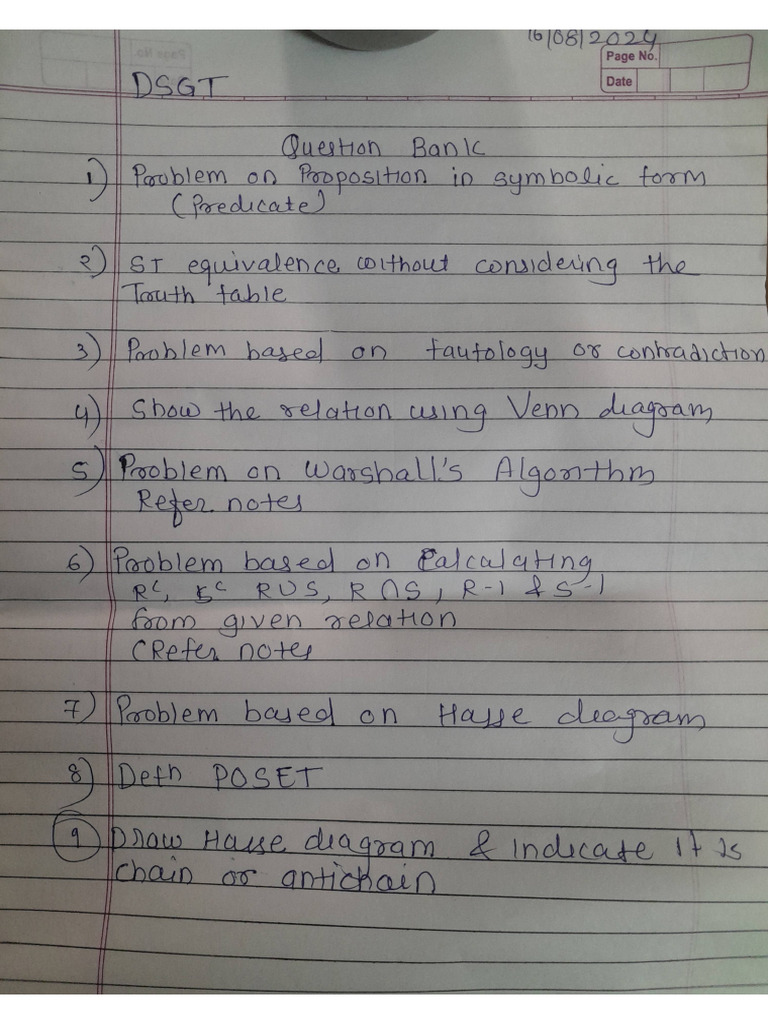 16/08/2024
Page No.
Date
DSGT
Question Bank
1) Problem on Proposition in symbolic form
(Predicate)
2) ST equivalence without considering the
Truth table
3) Problem based on tautology or contradiction
4) Show the relation using Venn diagram
5) Problem on Warshall's Algorithm
Refer notes
6) Problem based on Calculating
R^c, S^c R∪S, R∩S, R-1 & S-1
from given relation
(Refer notes
7) Problem based on Hasse diagram
8) Defn POSET
9 Draw Hasse diagram & indicate it is
chain or antichain